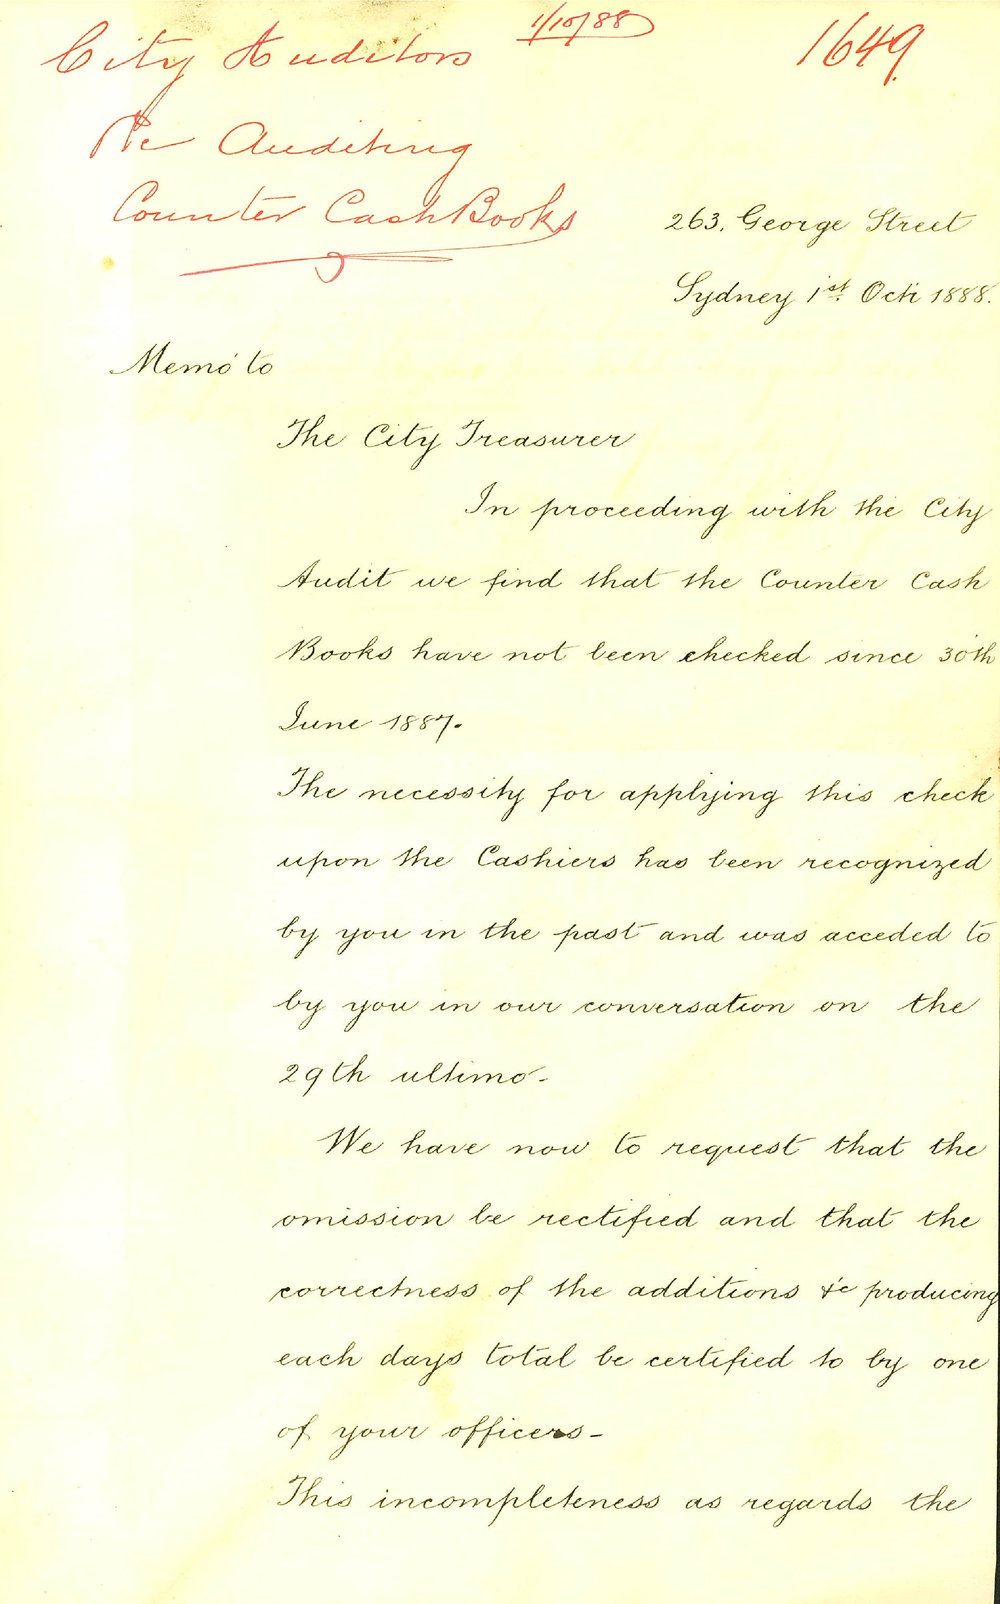 City Auditors 1/10/88 1649
Re Auditing
Counter Cash Books
263. George Street
Sydney 1st. Oct: 1888.
Memo to
The City Treasurer
In proceeding with the City
Audit we find that the Counter Cash
Books have not been checked since 30th
June 1887.
The necessity for applying this check
upon the Cashiers has been recognized
by you in the past and was acceded to
by you in our conversation on the
29th ultimo-
We have now to request that the
omission be rectified and that the
correctness of the additions &c producing
each days total be certified to by one
of your officers-
This incompleteness as regards the